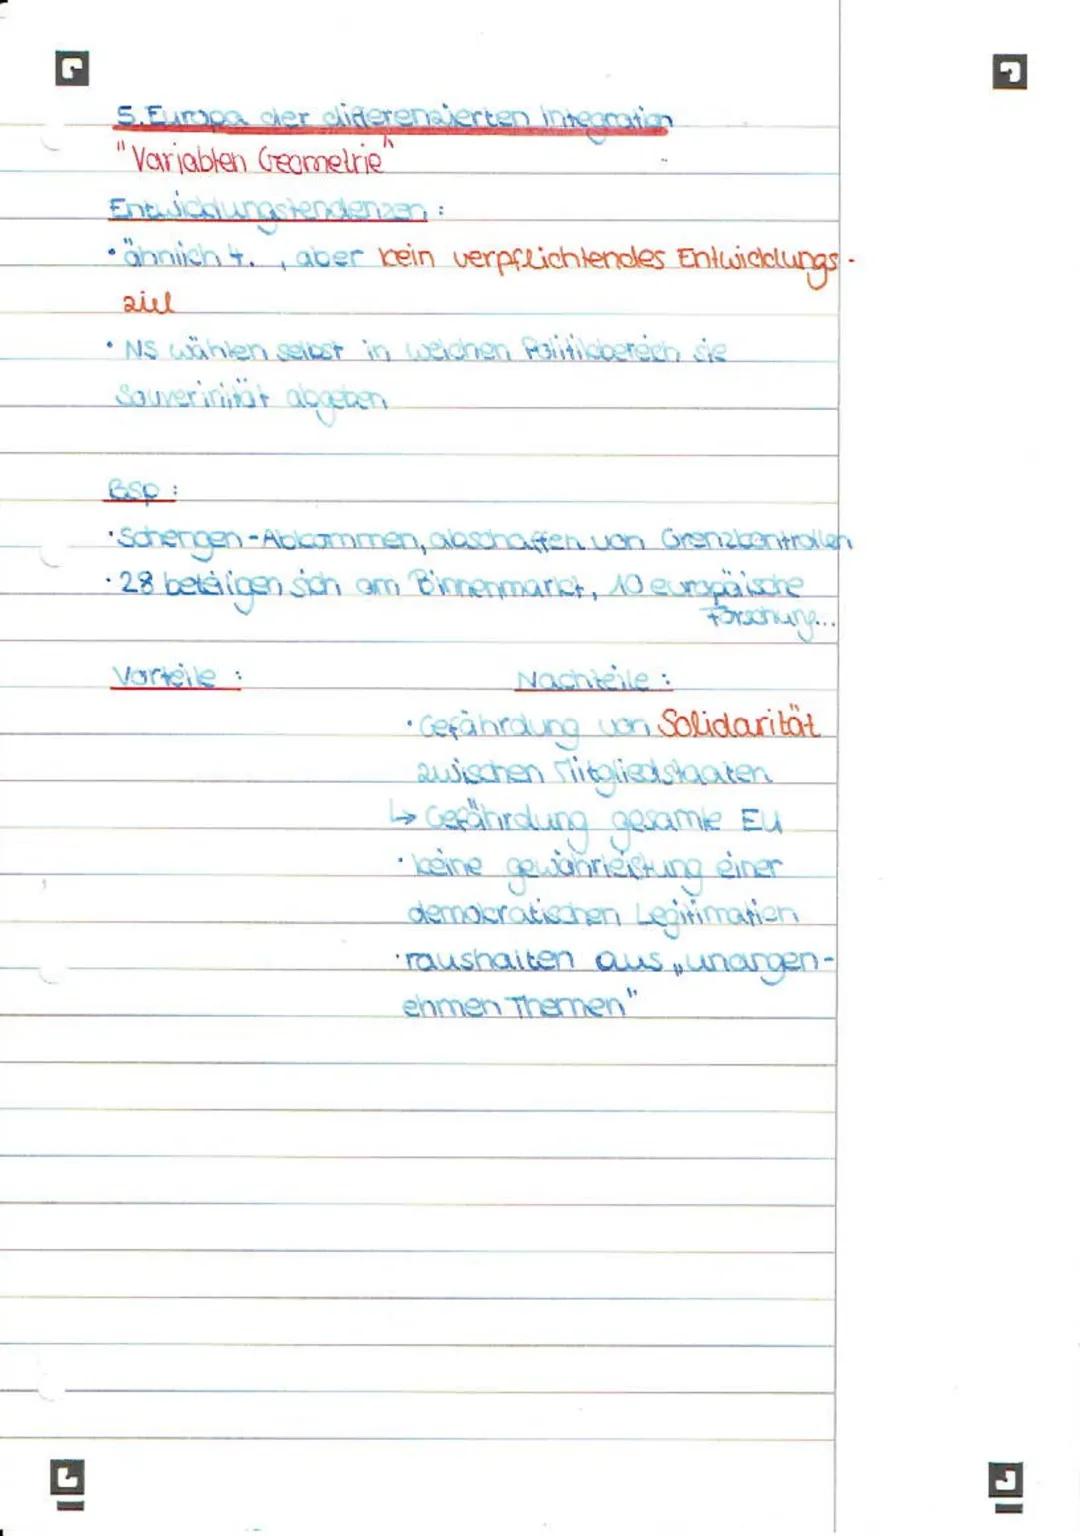 5. Europa der differenzierten Integration
"Variablen Geometrie"
Entwicklungstendenzen :
• ähnlich 4. , aber kein verpflichtendes Entwicklungs-
ziel
• NS wählen selbst in welchen Politikbereich sie
Souverinität abgeben
Bsp :
• Schengen-Abkommen, abschaffen von Grenzkontrollen
• 28 beteiligen sich am Binnenmarkt, 10 europäische
Forschung...
Vorteile :
Nachteile :
• Gefährdung von Solidarität
zwischen Mitgliedstaaten
↳ Gefährdung gesamte EU
• keine gewährleistung einer
demokratischen Legitimation
• raushalten aus „unangen-
ehmen Themen"